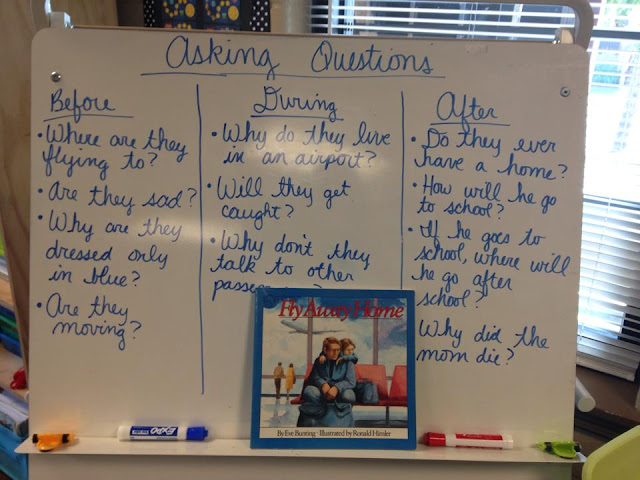 Asking Questions
Before
• Where are they
flying to?
• Are they sad?
• Why are they
dressed only
in blue?
• Are they
moving?
During
• Why do they live
in an airport?
• Will they get
caught?
• Why don't they
talk to other
After
• Do they ever
have a home?
• How will he go
to school?
• If he goes to
school, where will
he go after
school?
Why did the
mom die?
Fly Away Home
By Eve Bunting · Illustrated by Ronald Himler
EXPO